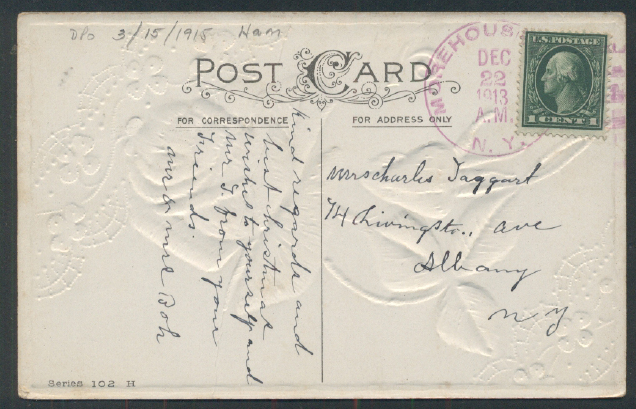 DPO 3/15/1915 Ham
POST CARD
FOR CORRESPONDENCE
FOR ADDRESS ONLY
MOREHOUS
DEC
22
1913
A.M.
N.Y.
U.S. POSTAGE
1 CENT 1
Kind regards and
best christmas
wishes to yourself and
Mr. T. from your
Friends.
and Mrs
Mrs Charles Taggart
74 Livingsto.. ave
Albany
N Y
Series 102 H